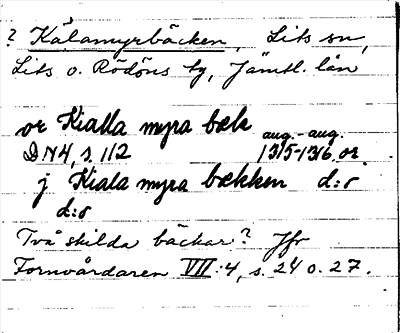 ? Kälamyrbäcken, Lits sn,
Lits o. Rödöns tg, Jämtl. län
or Kialla myra bæk aug.-aug.
DN4, s. 112 1315-1316 or.
j Kiala myra bækken d:o
d:o
Två skilda bäckar? Jfr
Fornvårdaren VII:4, s. 24 o. 27.